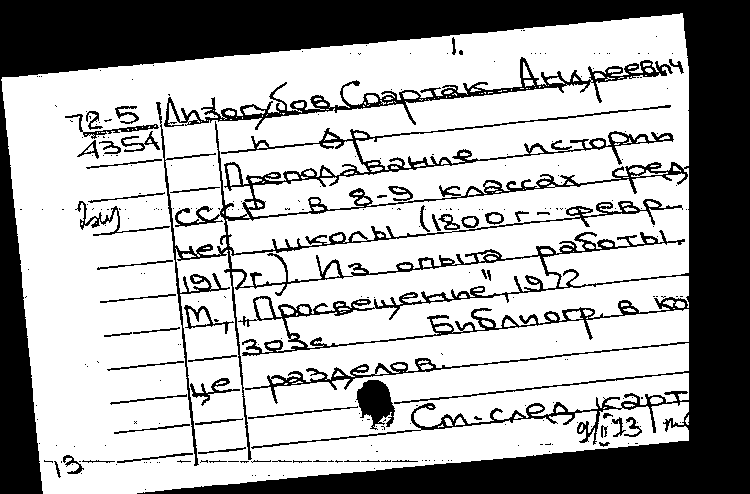 1.
72-5 Лизогубов, Спартак Андреевич
4354 и др.
Преподавание истории
2экз СССР в 8-9 классах сред-
ней школы (1800г.-февр.
1917г.). Из опыта работы.
М., „Просвещение", 1972
303с. Библиогр. в кон
це разделов.
См. след. карт
9/II 73
13